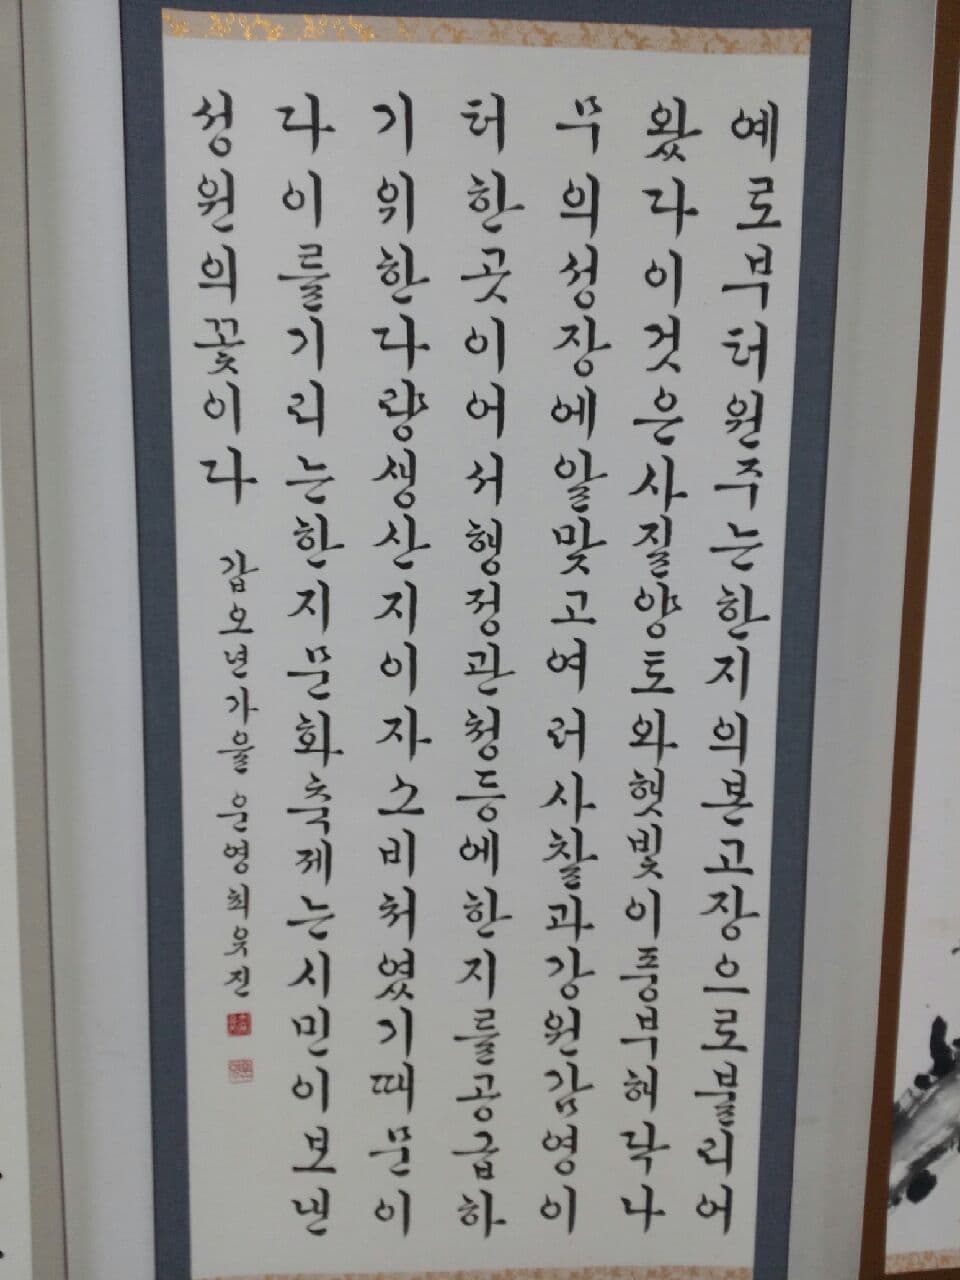 예로부터원주는한지의본고장으로불리어
왔다이것은사질양토와햇빛이풍부해닥나
무의성장에알맞고여러사찰과강원감영이
터한곳이어서행정관청등에한지를공급하
기위한다량생산지이자소비처였기때문이
다이를기리는한지문화축제는시민이보낸
성원의꽃이다 갑오년가을 운영최윳진